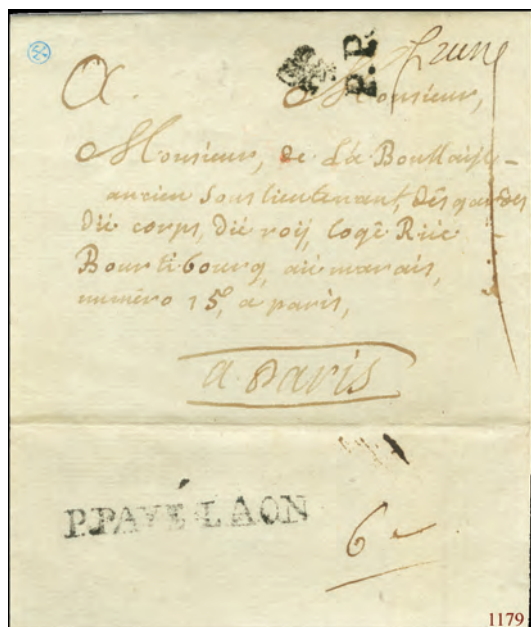 P.P.
A. Monsieur,
Monsieur, de La
ancien sous lieutenant, des gardes
du corps, du roy, logé Rue
Bourtibourg, au marais,
numéro 15, a paris,
a Paris
P.PAYÉ LAON
6
1179